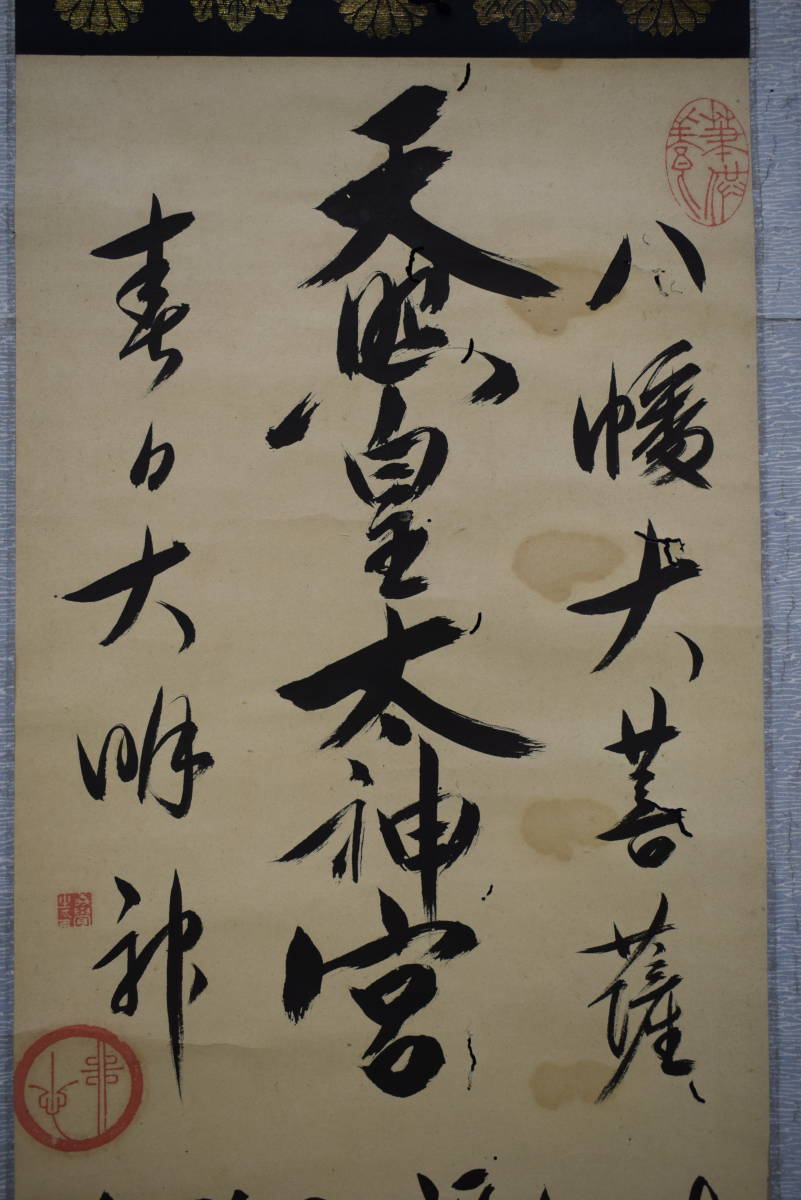 八幡大菩薩
天照皇太神宮
春日大明神